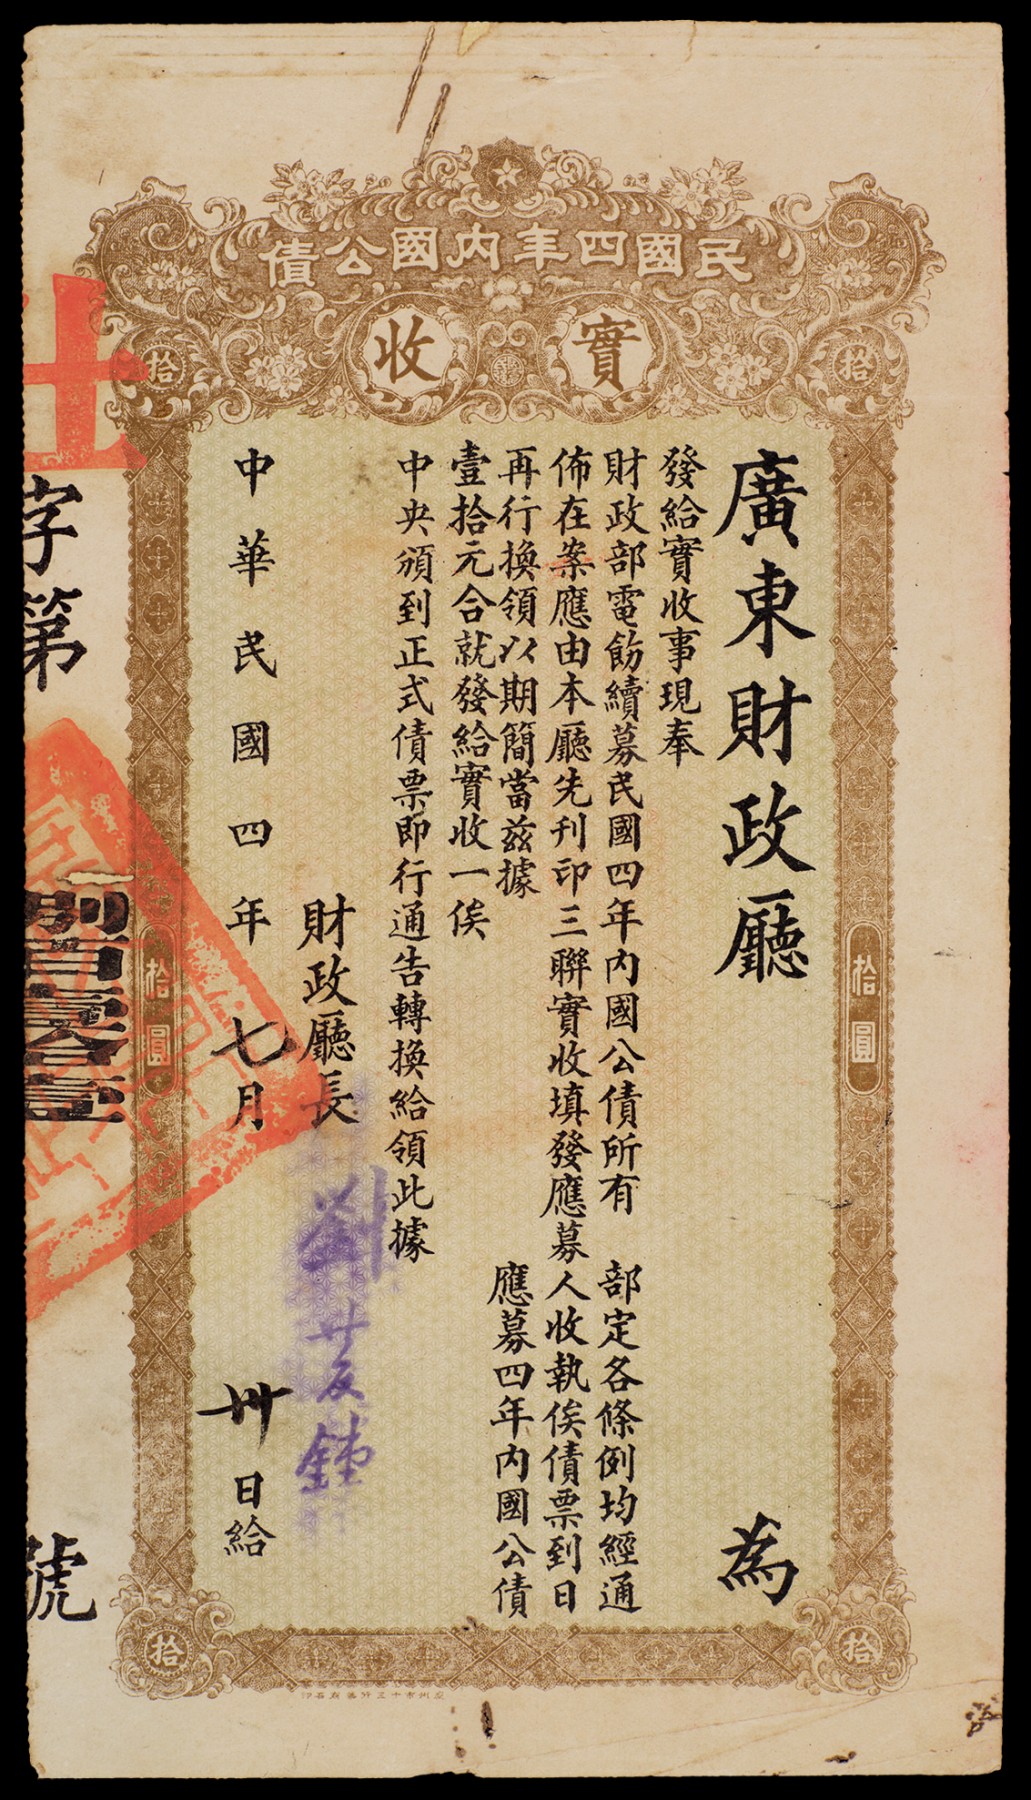 民國四年內國公債
實收
拾
拾
廣東財政廳 為
發給實收事現奉
財政部電飭續募民國四年內國公債所有 部定各條例均經通
佈在案應由本廳先刊印三聯實收填發應募人收執俟債票到日
再行換領以期簡當茲據 應募四年內國公債
壹拾元合就發給實收一俟
中央頒到正式債票即行通告轉換給領此據
財政廳長
中華民國四年七月卅日給
拾圓
拾圓
字第
號
拾
拾